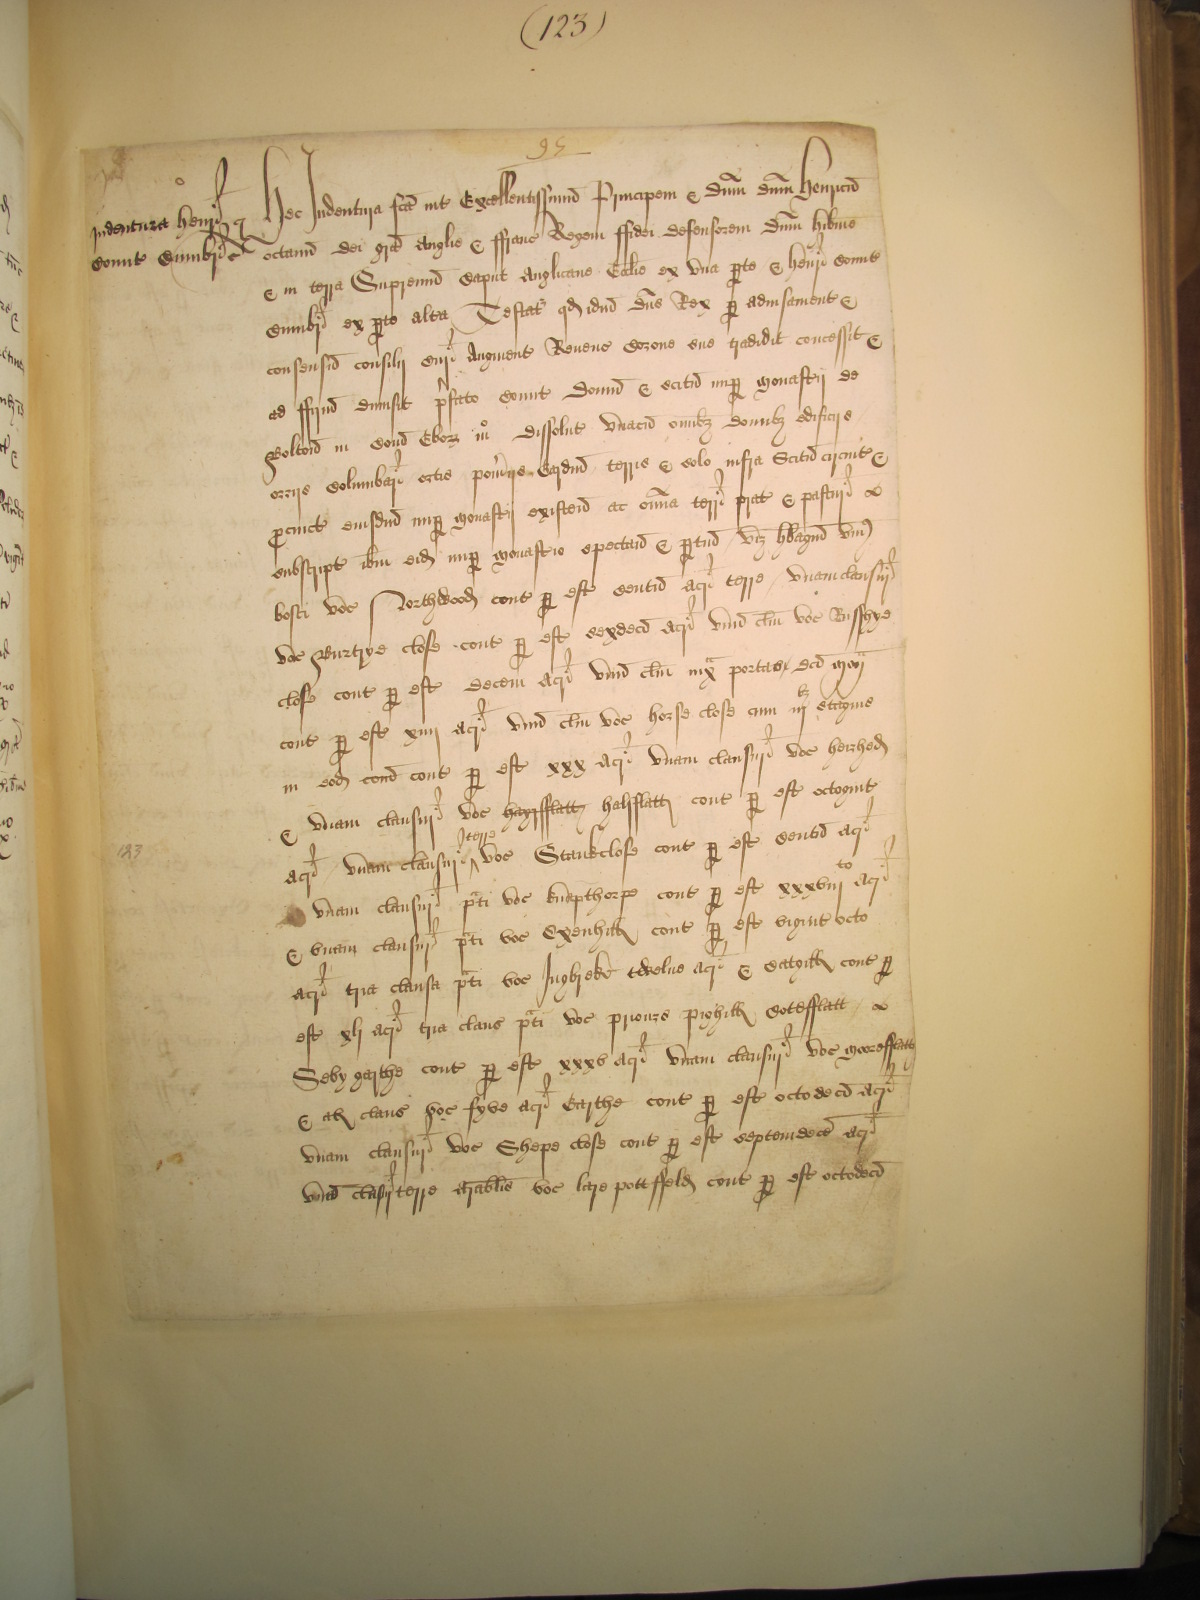 (123)
95
Indentura Henr̄ q
comit Cumbr̄
Hec Indentura fcā int Excellentissimū Principem & dn̄m dn̄m Henricū
octavū dei grā Anglie & ffranc Regem ffidei defensorem dn̄m hib̄nie
& in terra Supremū caput Anglicane Ecclie ex vna pte & henr̄ comit
Cumbr̄ ex pte alta Testat qd idm̄ dn̄s Rex p advisament &
consensū consilij cur̄ Augment Revenc Corone sue tradidit concessit &
ad ffirmā dimisit p̄fato comit domū & scitū nup monastij de
Boltoñ in com̄ Ebor̄ mo dissolut vnacū om̄ibz domibz edificijs
orrijs columbar̄ ortis pomr̄ijs gardinis terris & solo infra scitū circuit &
p̄cinct eiusdm̄ nup monastij existeñ ac om̄ia terr̄ prat & pastur̄
subscript ib̄m eid̄ nup monastio spectañ & ptiñ viz hbagiū vni9
bosci voc Northwood cont p est centū acr̄ terre vnam clausur̄
voc Burtrye close cont p est sexdecī acr̄ vnū cl̄m voc Risshye
close cont p est decem acr̄ vnū cl̄m iux̄ portas
cont p est xiiij acr̄ vnū cl̄m voc horse close cum iijbz stagnis
in eod cont p est xxx acr̄ vnam clausur̄ voc
& vnam clausur̄ voc hayfflatt halfflatt cont p est octogint
acr̄ terre vnam clausur̄ voc Stankclose cont p est centū acr̄
vnam clausur̄ pti voc Knapthorpe cont p est xxxviijto acr̄
& vnam clausur̄ pti voc Oxenhill cont p est vigint octo
acr̄ tria clausa pti voc twelve acr̄ & cont p
est xlj acr̄ tria claus pti voc priours cotefflatt
Seby garthe cont p est xxxv acr̄ vnam clausur̄ voc moorefflatt
& al claus voc fyve acr̄ garthe cont p est octodecī acr̄
vnam clausur̄ voc Shepe close cont p est septemdecī acr̄
vnā clausur̄ terre arabilis voc ffeld cont p est octodecī
123